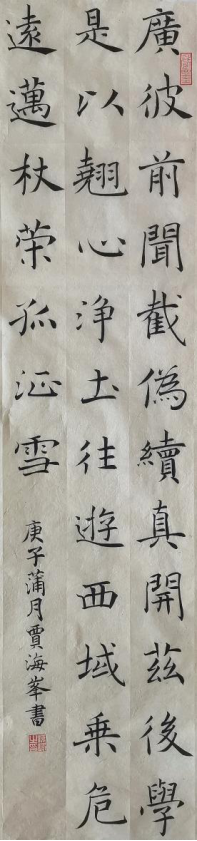 廣彼前聞截偽續真開茲後學
是以翹心淨土往遊西域乗危
遠邁杖荣孤征雪
庚子蒲月賈海峯書